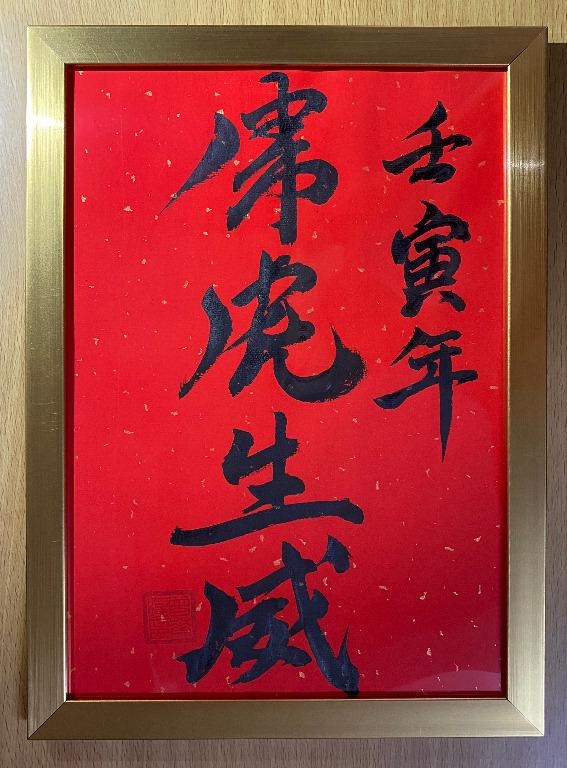 壬寅年
虎虎生威